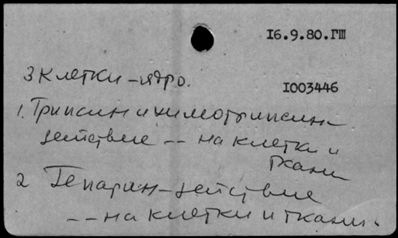 16.9.80.ГШ
3 Клетки-ядро.
I003446
1. Трипсин и химотрипсин-
действие -- на клетки и
ткани
2 Гепарин-действие
-- на клетки и ткани.